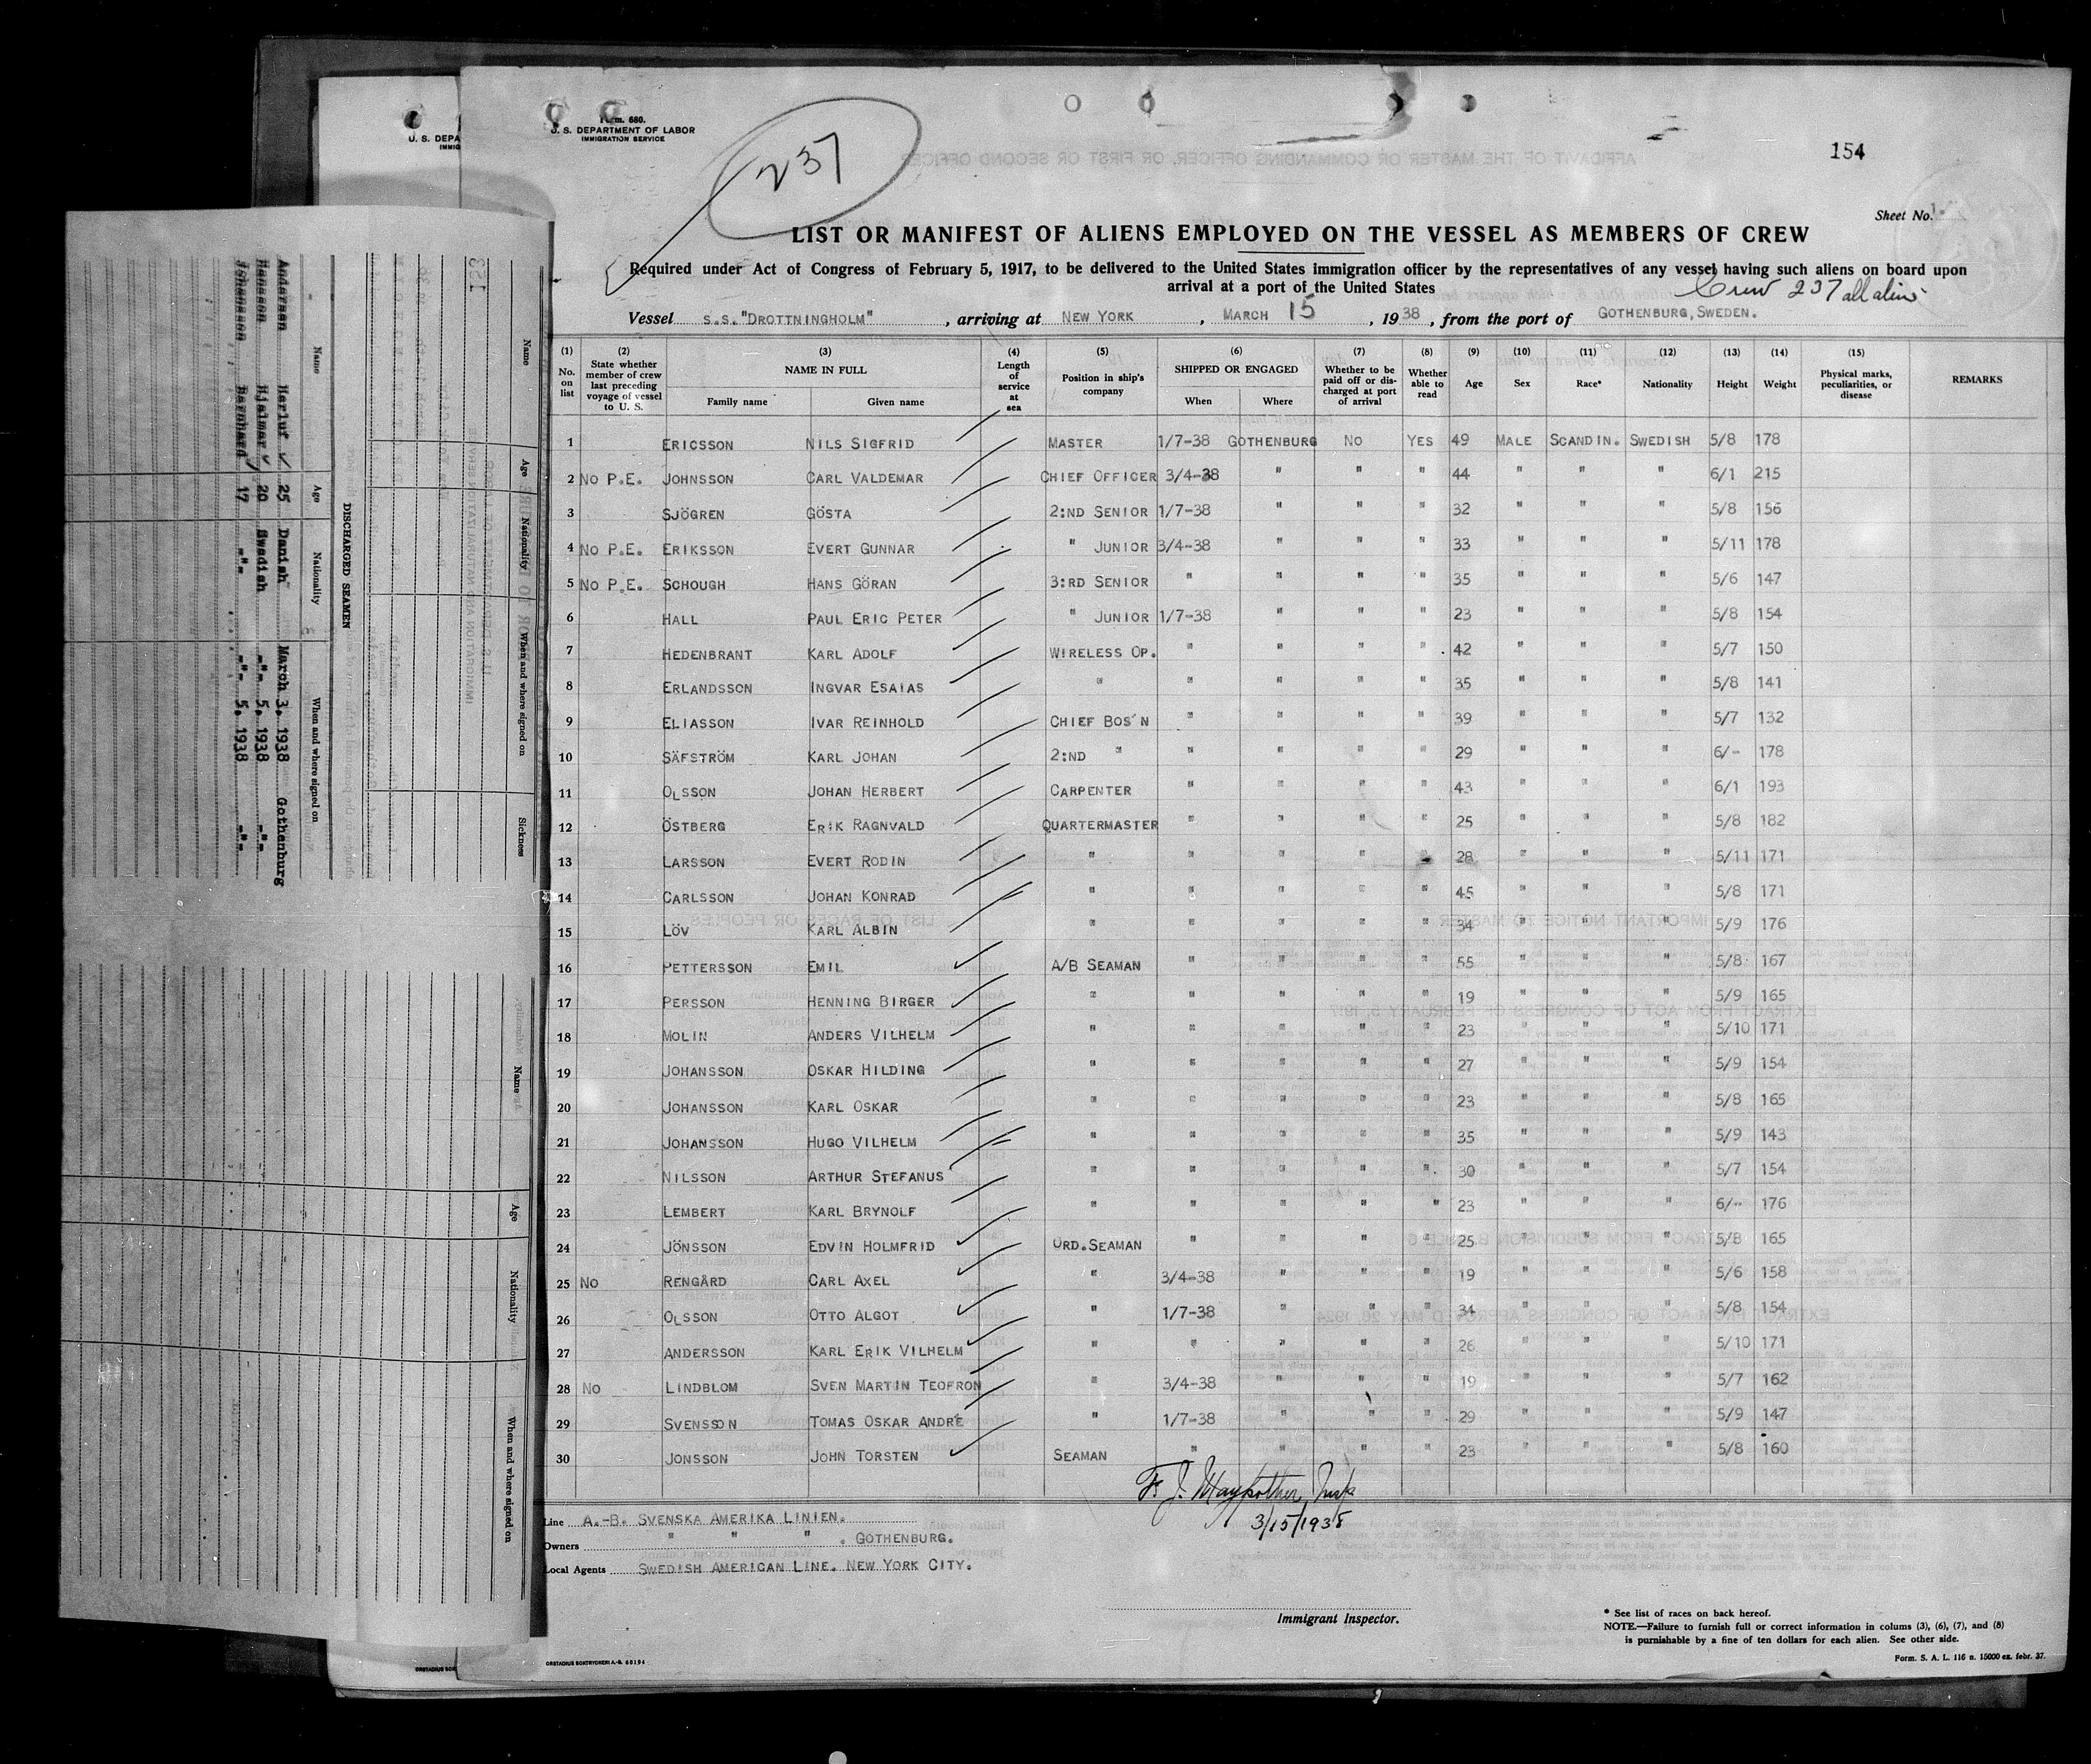 Form. 680.
U. S. DEPARTMENT OF LABOR
IMMIGRATION SERVICE
U. S. DEPA
IMMIG
237
154
Sheet No. 1.
LIST OR MANIFEST OF ALIENS EMPLOYED ON THE VESSEL AS MEMBERS OF CREW
Required under Act of Congress of February 5, 1917, to be delivered to the United States immigration officer by the representatives of any vessel having such aliens on board upon
arrival at a port of the United States
Crew 237 all aliens
Vessel S.S."DROTTNINGHOLM" , arriving at NEW YORK , MARCH 15 , 1938 , from the port of GOTHENBURG, SWEDEN.
(1) No. on list (2) State whether member of crew last preceding voyage of vessel to U. S. (3) NAME IN FULL Family name Given name (4) Length of service at sea (5) Position in ship's company (6) SHIPPED OR ENGAGED When Where (7) Whether to be paid off or discharged at port of arrival (8) Whether able to read (9) Age (10) Sex (11) Race* (12) Nationality (13) Height (14) Weight (15) Physical marks, peculiarities, or disease REMARKS
1 ERICSSON NILS SIGFRID MASTER 1/7-38 GOTHENBURG NO YES 49 MALE SCANDIN. SWEDISH 5/8 178
2 NO P.E. JOHNSSON CARL VALDEMAR CHIEF OFFICER 3/4-38 " " " 44 " " " 6/1 215
3 SJÖGREN GÖSTA 2:ND SENIOR 1/7-38 " " " 32 " " " 5/8 156
4 NO P.E. ERIKSSON EVERT GUNNAR " JUNIOR 3/4-38 " " " 33 " " " 5/11 178
5 NO P.E. SCHOUGH HANS GÖRAN 3:RD SENIOR " " " " 35 " " " 5/6 147
6 HALL PAUL ERIC PETER " JUNIOR 1/7-38 " " " 23 " " " 5/8 154
7 HEDENBRANT KARL ADOLF WIRELESS OP. " " " " 42 " " " 5/7 150
8 ERLANDSSON INGVAR ESAIAS " " " " " 35 " " " 5/8 141
9 ELIASSON IVAR REINHOLD CHIEF BOS'N " " " " 39 " " " 5/7 132
10 SÄFSTRÖM KARL JOHAN 2:ND " " " " " 29 " " " 6/- 178
11 OLSSON JOHAN HERBERT CARPENTER " " " " 43 " " " 6/1 193
12 ÖSTBERG ERIK RAGNVALD QUARTERMASTER " " " " 25 " " " 5/8 182
13 LARSSON EVERT RODIN " " " " " 28 " " " 5/11 171
14 CARLSSON JOHAN KONRAD " " " " " 45 " " " 5/8 171
15 LÖV KARL ALBIN " " " " " 34 " " " 5/9 176
16 PETTERSSON EMIL A/B SEAMAN " " " " 55 " " " 5/8 167
17 PERSSON HENNING BIRGER " " " " " 19 " " " 5/9 165
18 MOLIN ANDERS VILHELM " " " " " 23 " " " 5/10 171
19 JOHANSSON OSKAR HILDING " " " " " 27 " " " 5/9 154
20 JOHANSSON KARL OSKAR " " " " " 23 " " " 5/8 165
21 JOHANSSON HUGO VILHELM " " " " " 35 " " " 5/9 143
22 NILSSON ARTHUR STEFANUS " " " " " 30 " " " 5/7 154
23 LEMBERT KARL BRYNOLF " " " " " 23 " " " 6/- 176
24 JÖNSSON EDVIN HOLMFRID ORD.SEAMAN " " " " 25 " " " 5/8 165
25 NO RENGÅRD CARL AXEL " 3/4-38 " " " 19 " " " 5/6 158
26 OLSSON OTTO ALGOT " 1/7-38 " " " 34 " " " 5/8 154
27 ANDERSSON KARL ERIK VILHELM " " " " " 26 " " " 5/10 171
28 NO LINDBLOM SVEN MARTIN TEOFRON " 3/4-38 " " " 19 " " " 5/7 162
29 SVENSSON TOMAS OSKAR ANDRÉ " 1/7-38 " " " 29 " " " 5/9 147
30 JONSSON JOHN TORSTEN SEAMAN " " " " 23 " " " 5/8 160
F. J. Maykother, Insp
3/15/1938
Line A.-B. SVENSKA AMERIKA LINIEN.
Owners " " " . GOTHENBURG.
Local Agents SWEDISH AMERICAN LINE. NEW YORK CITY.
Immigrant Inspector.
* See list of races on back hereof.
NOTE.—Failure to furnish full or correct information in colums (3), (6), (7), and (8)
is purnishable by a fine of ten dollars for each alien. See other side.
Form. S. A. L. 116 n. 15000 ex. febr. 37.
ORSTADIUS BOKTRYCKERI A.-B. 60194
153
DISCHARGED SEAMEN
Name Age Nationality When and where signed on
Andersen Herluf 25 Danish March 3, 1938 Gothenburg
Hansson Hjalmar 20 Swedish -"- 5, 1938 -"-
Johansson Barnhard 17 -"- -"- 5, 1938 -"-
Name Age Nationality When and where signed on Sickness
Name Age Nationality When and where signed on